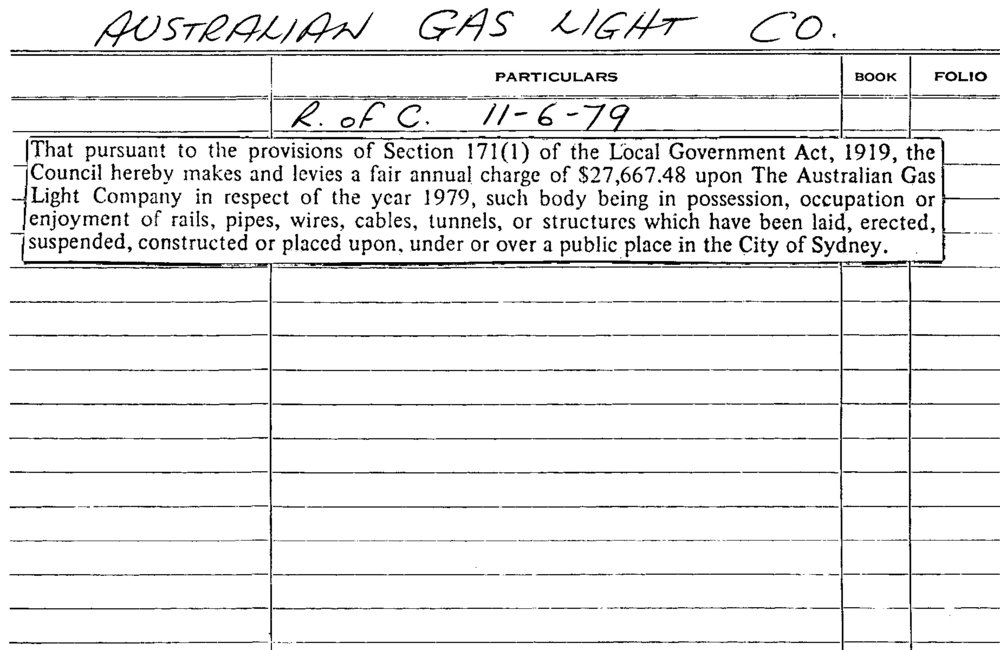 AUSTRALIAN GAS LIGHT CO.
PARTICULARS BOOK FOLIO
R. of C. 11-6-79
That pursuant to the provisions of Section 171(1) of the Local Government Act, 1919, the
Council hereby makes and levies a fair annual charge of $27,667.48 upon The Australian Gas
Light Company in respect of the year 1979, such body being in possession, occupation or
enjoyment of rails, pipes, wires, cables, tunnels, or structures which have been laid, erected,
suspended, constructed or placed upon, under or over a public place in the City of Sydney.